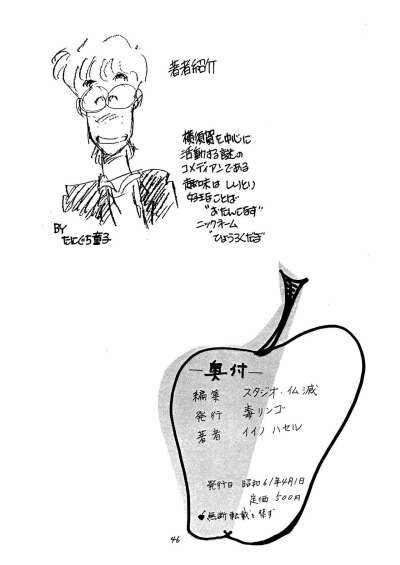 著者紹介
横須賀を中心に
活動する謎の
コメディアンである
趣味は しりとり
好きなことば
"おたんこなす"
ニックネーム
"ひょうろくだま"
BY
たにぐち童子
―奥付―
編集 スタジオ・仏滅
発行 毒リンゴ
著者 イイノ ハセル
発行日 昭和61年4月1日
定価 500円
無断転載を禁ず
46